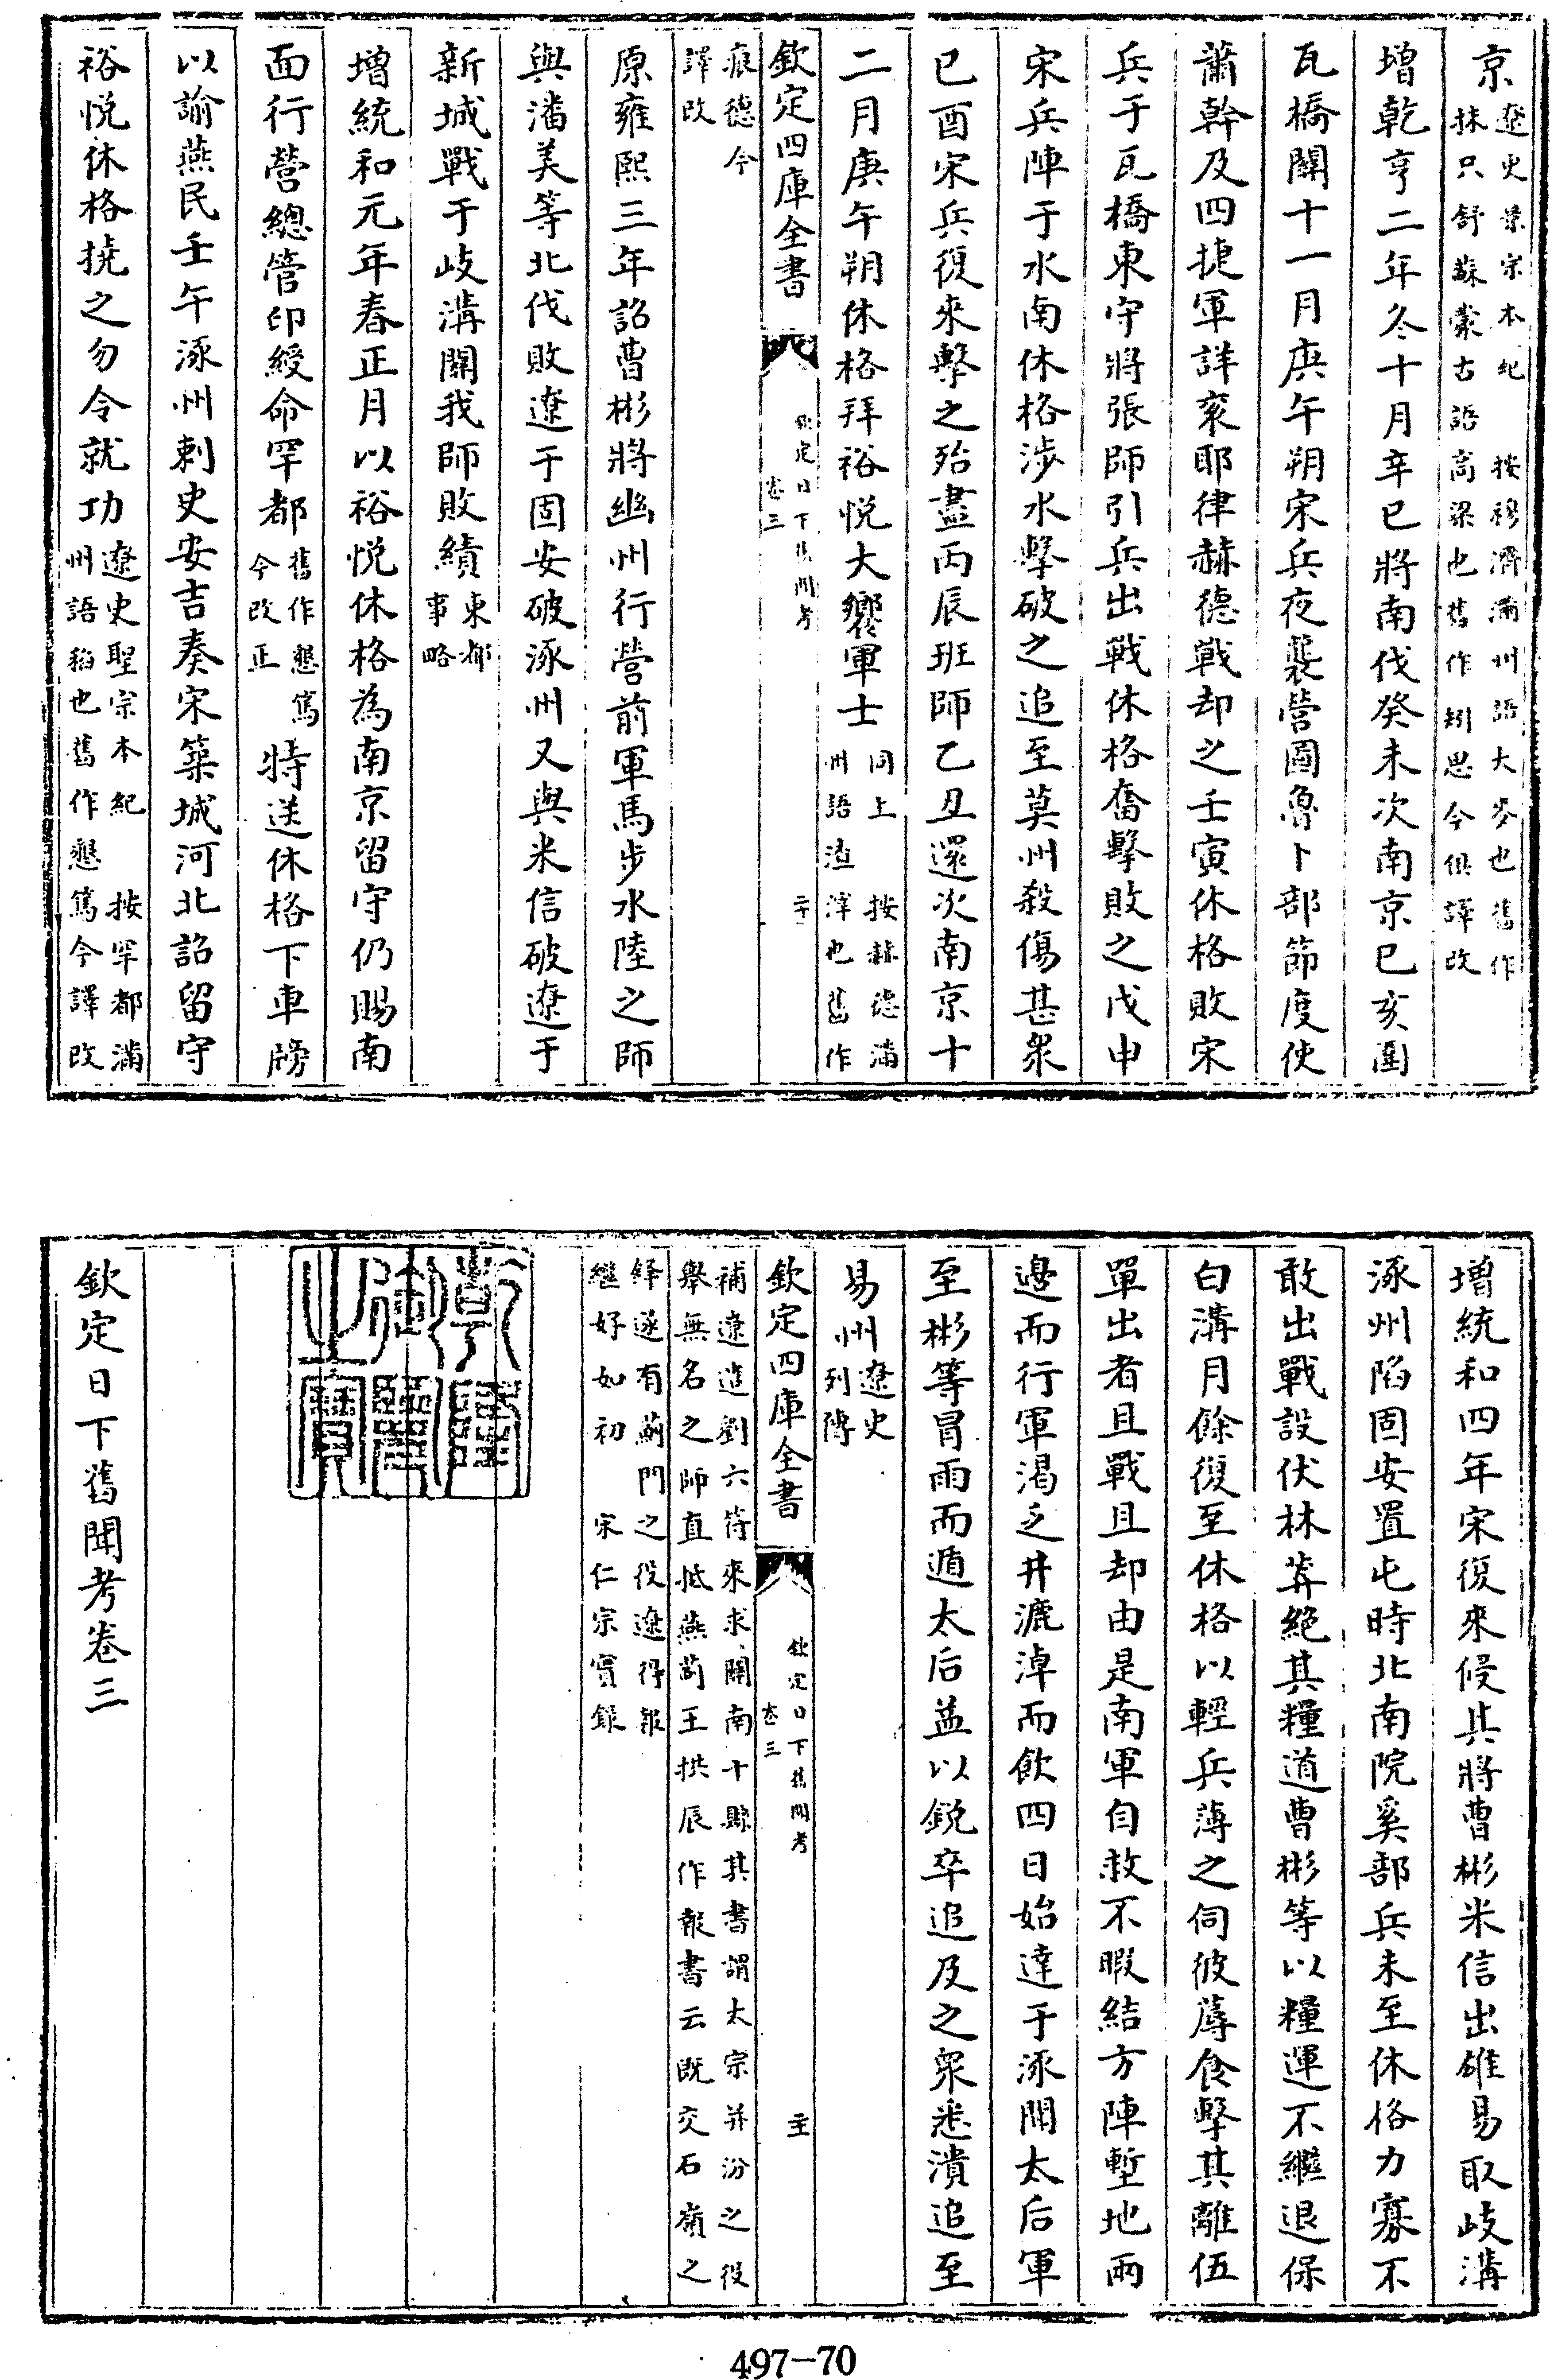 京遼史景宗本紀　按穆濟滿州語大麥也舊作
抹只舒蘇蒙古語高梁也舊作矧思今俱譯改
增乾亨二年冬十月辛巳將南伐癸未次南京己亥圍
瓦橋關十一月庚午朔宋兵夜襲營圖魯卜部節度使
蕭幹及四捷軍詳袞耶律赫德戰却之壬寅休格敗宋
兵于瓦橋東守將張師引兵出戰休格奮擊敗之戊申
宋兵陣于水南休格涉水擊破之追至莫州殺傷甚衆
已酉宋兵復來擊之殆盡丙辰班師乙丑還次南京十
二月庚午朔休格拜裕悅大饗軍士同上　按赫德滿
州語渣滓也舊作
欽定四庫全書
欽定日下舊聞考
卷三
二十
痕德今
譯改
原雍熙三年詔曹彬將幽州行營前軍馬步水陸之師
與潘美等北伐敗遼于固安破涿州又與米信破遼于
新城戰于岐溝關我師敗績東都
事略
增統和元年春正月以裕悅休格為南京留守仍賜南
面行營總管印綬命罕都舊作懇篤
今改正特送休格下車牓
以諭燕民壬午涿州刺史安吉奏宋築城河北詔留守
裕悅休格撓之勿令就功遼史聖宗本紀　按罕都滿
州語稻也舊作懇篤今譯改
增統和四年宋復來侵其將曹彬米信出雄易取岐溝
涿州陷固安置屯時北南院奚部兵未至休格力寡不
敢出戰設伏林莽絕其糧道曹彬等以糧運不繼退保
白溝月餘復至休格以輕兵薄之伺彼蓐食擊其離伍
單出者且戰且却由是南軍自救不暇結方陣塹地兩
邊而行軍渴乏井漉淖而飲四日始達于涿聞太后軍
至彬等冒雨而遁太后益以銳卒追及之衆悉潰追至
易州遼史
列傳
欽定四庫全書
欽定日下舊聞考
卷三
二十一
補遼遣劉六符來求關南十縣其書謂太宗并汾之役
舉無名之師直抵燕薊王拱辰作報書云既交石嶺之
鋒遂有薊門之役遼得報
繼好如初　宋仁宗實錄
乾隆御覽之寶
欽定日下舊聞考卷三
497-70